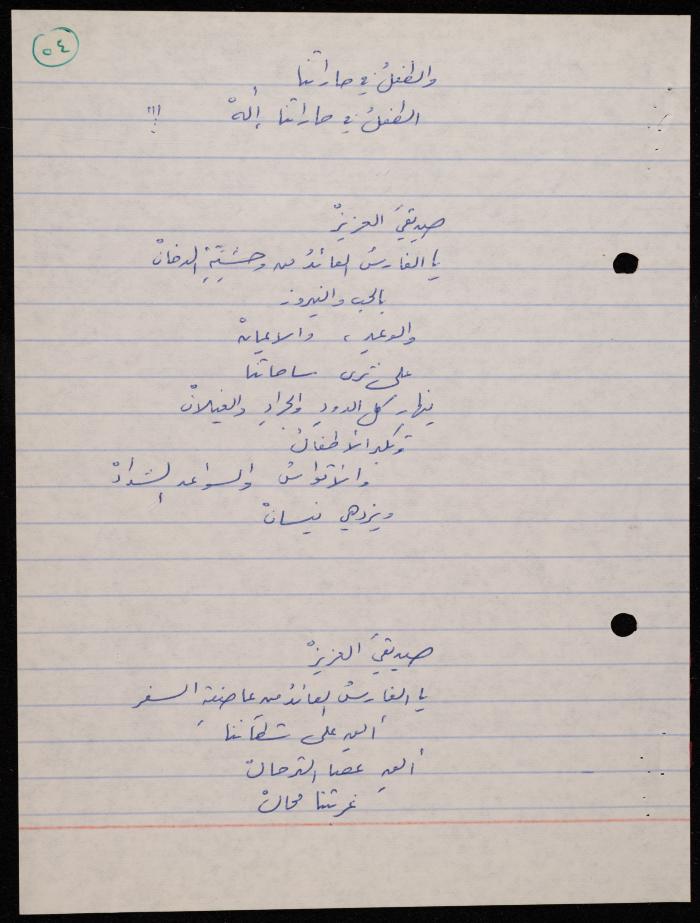 ٥٤
والطفلُ في حاراتنا
الطفلُ في حاراتنا إلهْ !!!
صديقيَ العزيزْ
يا الفارسُ العائدُ من وحشيّةِ الدخانْ
بالحب والنيروز
والوعدِ ، والايمانْ
على ثرى ساحاتنا
ينهار كل الدودِ والجرادِ والغيلانْ
وتكبر الأطفالُ
والأقواسُ والسواعد الشدادْ
ويزدهي نيسانْ
صديقيَ العزيزْ
يا الفارسُ العائدُ من عاصفةِ السفر
ألقِ على شطآننا
ألقِ عصا الترحالْ
غربتنا محالْ